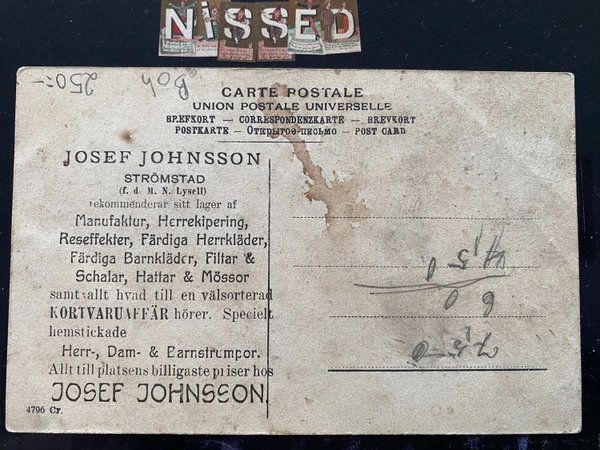 NiSSED
250:-
Boh
CARTE POSTALE
UNION POSTALE UNIVERSELLE
BREFKORT — CORRESPONDENZKARTE — BREVKORT
POSTKARTE — Открытое-письмо — POST CARD
JOSEF JOHNSSON
STRÖMSTAD
(f. d. M. N. Lysell)
rekommenderar sitt lager af
Manufaktur, Herrekipering,
Reseffekter, Färdiga Herrkläder,
Färdiga Barnkläder, Filtar &
Schalar, Hattar & Mössor
samt allt hvad till en välsorterad
KORTVARUAFFÄR hörer. Specielt
hemstickade
Herr-, Dam- & Barnstrumpor.
Allt till platsens billigaste priser hos
JOSEF JOHNSSON.
4796 Cr.